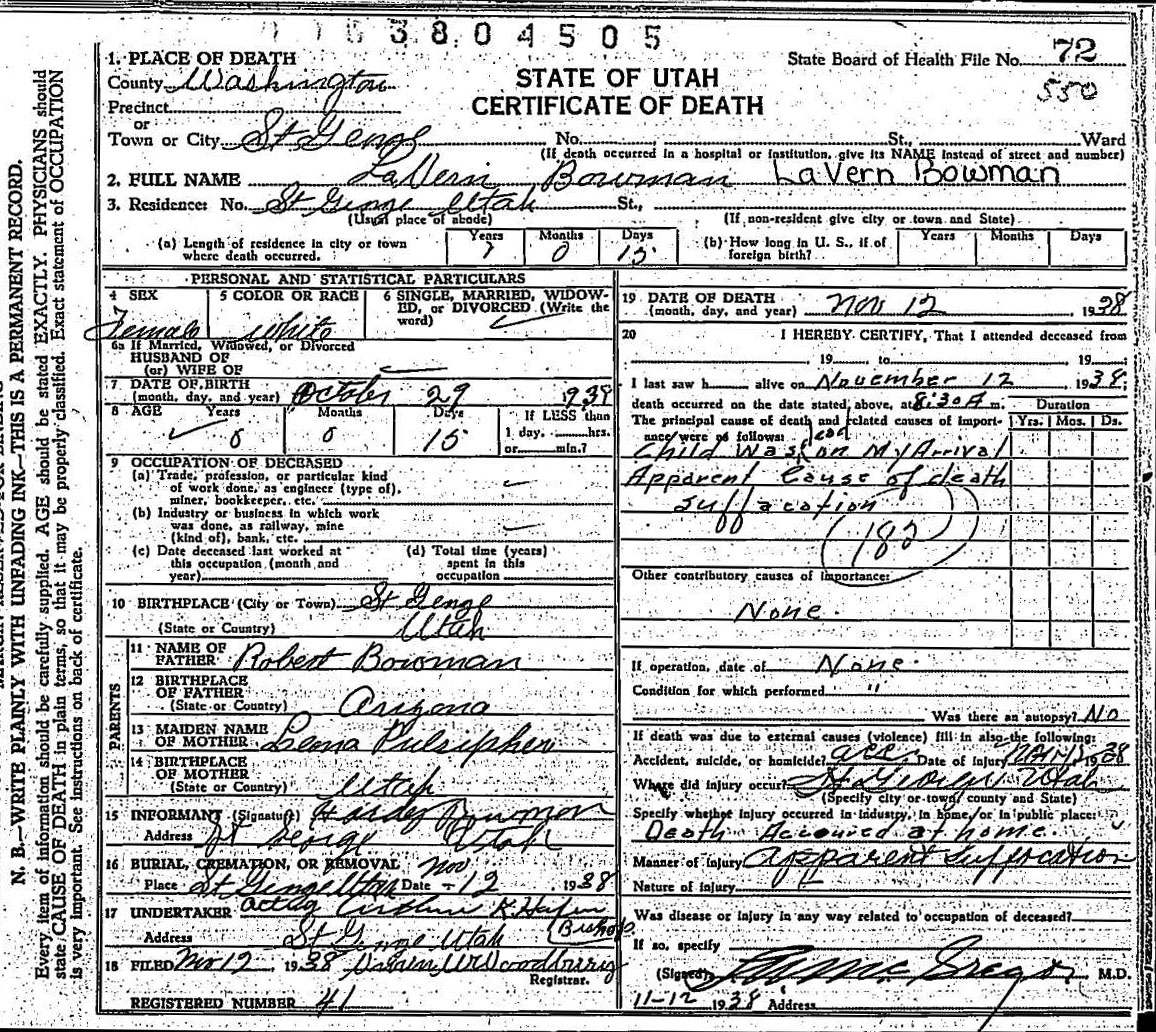 3 8 0 4 5 0 5
1. PLACE OF DEATH
State Board of Health File No. 72
County Washington
STATE OF UTAH
550
Precinct
CERTIFICATE OF DEATH
or
Town or City St George No. St., Ward
(If death occurred in a hospital or institution, give its NAME instead of street and number)
2. FULL NAME LaVern Bowman LaVern Bowman
3. Residence: No. St George Utah St.,
(Usual place of abode) (If non-resident give city or town and State)
(a) Length of residence in city or town where death occurred. Years Months 0 Days 15
(b) How long in U. S., if of foreign birth? Years Months Days
PERSONAL AND STATISTICAL PARTICULARS
4 SEX 5 COLOR OR RACE 6 SINGLE, MARRIED, WIDOWED, or DIVORCED (Write the word)
Female White
6a If Married, Widowed, or Divorced
HUSBAND OF
(or) WIFE OF
7 DATE OF BIRTH
(month, day, and year) October 29 1938
8 AGE Years Months Days If LESS than
0 0 15 1 day, hrs.
or min.?
9 OCCUPATION OF DECEASED
(a) Trade, profession, or particular kind
of work done, as engineer (type of),
miner, bookkeeper, etc.
(b) Industry or business in which work
was done, as railway, mine
(kind of), bank, etc.
(c) Date deceased last worked at
this occupation (month and
year)
(d) Total time (years)
spent in this
occupation
10 BIRTHPLACE (City or Town) St George
(State or Country) Utah
PARENTS
11 NAME OF
FATHER Robert Bowman
12 BIRTHPLACE
OF FATHER
(State or Country) Arizona
13 MAIDEN NAME
OF MOTHER Lena Pulsipher
14 BIRTHPLACE
OF MOTHER
(State or Country) Utah
15 INFORMANT (Signature) Bowman
Address St George Utah
16 BURIAL, CREMATION, OR REMOVAL Nov
Place St George Utah Date -12 1938
17 UNDERTAKER K. Hafen
(Bishop)
Address St George Utah
18 FILED Nov 12, 1938 Woodbury
Registrar.
REGISTERED NUMBER 41
19 DATE OF DEATH
(month, day, and year) Nov 12 1938
20 I HEREBY CERTIFY, That I attended deceased from
19 to 19 ;
I last saw h alive on November 12 1938;
death occurred on the date stated above, at 8:30 A m. Duration
The principal cause of death and related causes of importance were as follows: Yrs. Mos. Ds.
dead
Child Was on My Arrival
Apparent Cause of death
suffacation
(182)
Other contributory causes of importance:
None.
If operation, date of None.
Condition for which performed "
Was there an autopsy? No
If death was due to external causes (violence) fill in also the following:
Accident, suicide, or homicide? acc. Date of injury 1938
Where did injury occur? St George Utah
(Specify city or town, county and State)
Specify whether injury occurred in industry, in home, or in public place:
Death Accured at home.
Manner of injury Apparent Suffocation
Nature of injury "
Was disease or injury in any way related to occupation of deceased?
If so, specify
(Signed) McGregor M.D.
11-12 1938 Address
N. B.—WRITE PLAINLY WITH UNFADING INK—THIS IS A PERMANENT RECORD.
Every item of information should be carefully supplied. AGE should be stated EXACTLY. PHYSICIANS should
state CAUSE OF DEATH in plain terms, so that it may be properly classified. Exact statement of OCCUPATION
is very important. See instructions on back of certificate.